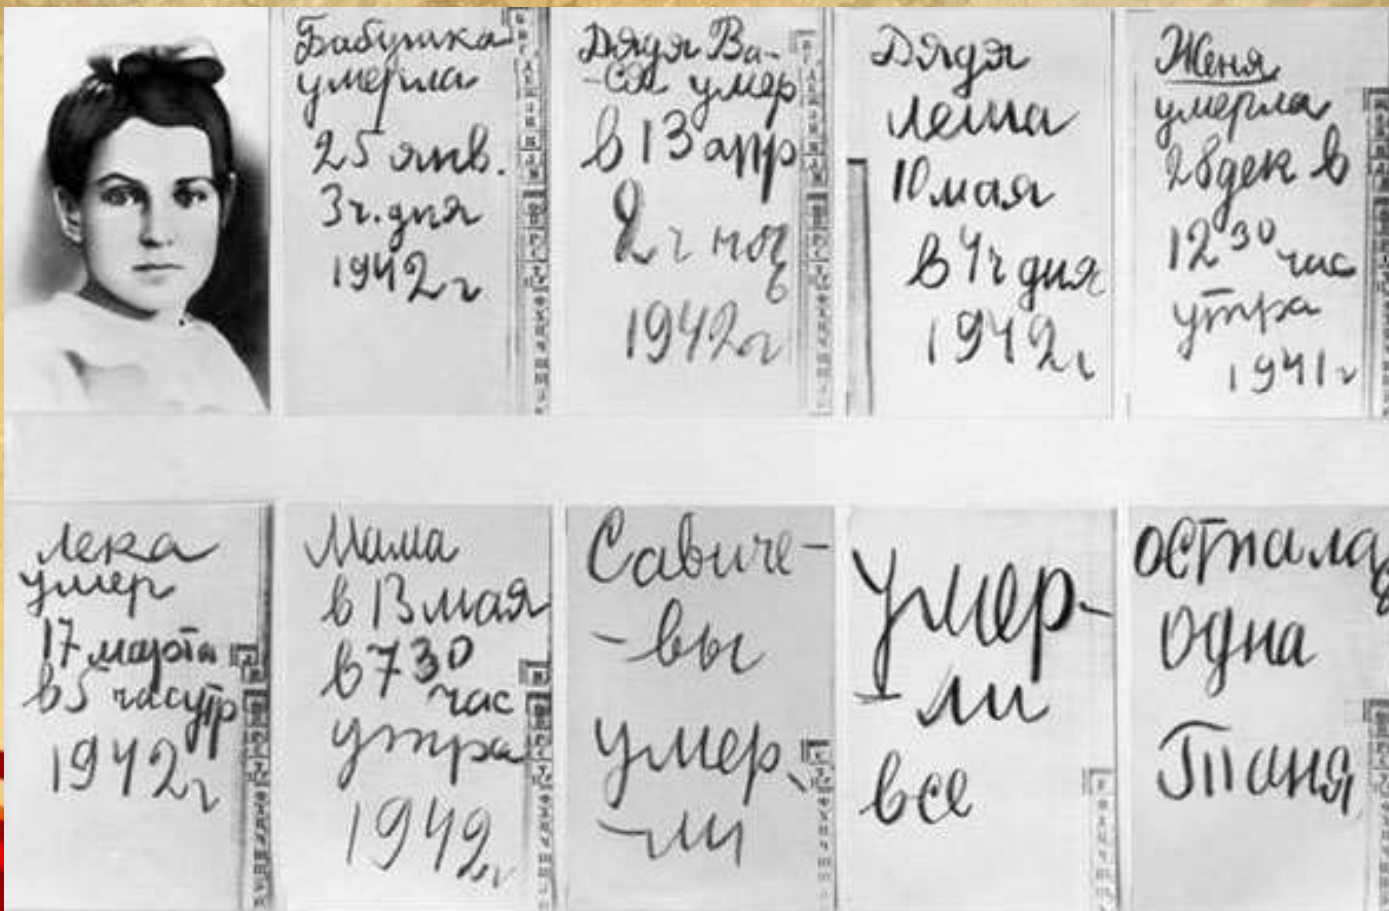 Бабушка
умерла
25 янв.
3 ч. дня
1942 г
Дядя Ва-
-ся умер
в 13 апр
2 ч ноч
ь
1942 г
Дядя
Леша
10 мая
в 4 ч дня
1942 г
Женя
умерла
28 дек в
12 30 час
утра
1941 г
Лека
умер
17 марта
в 5 час утр
1942 г
Мама
в 13 мая
в 7 30
час
утра
1942 г
Савиче-
-вы
умер-
-ли
Умер-
-ли
все
Осталась
одна
Таня